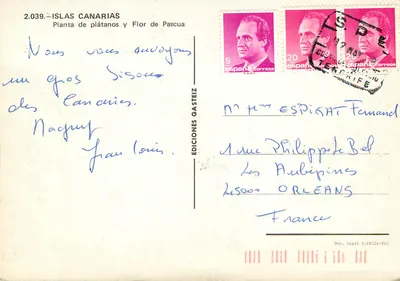 2.039.–ISLAS CANARIAS
Planta de plátanos y Flor de Pascua
Nous vous envoyons
un gros bisous
des Canaries.
Jean Louis.
EDICIONES GASTEIZ
5
ESPAÑA correos
20
ESPAÑA correos
ESPAÑA correos
TENERIFE
Mr Mme ESPIGAT Fernand
1 rue Philippe Le Bel
Les Aubépines
45000 ORLEANS
France